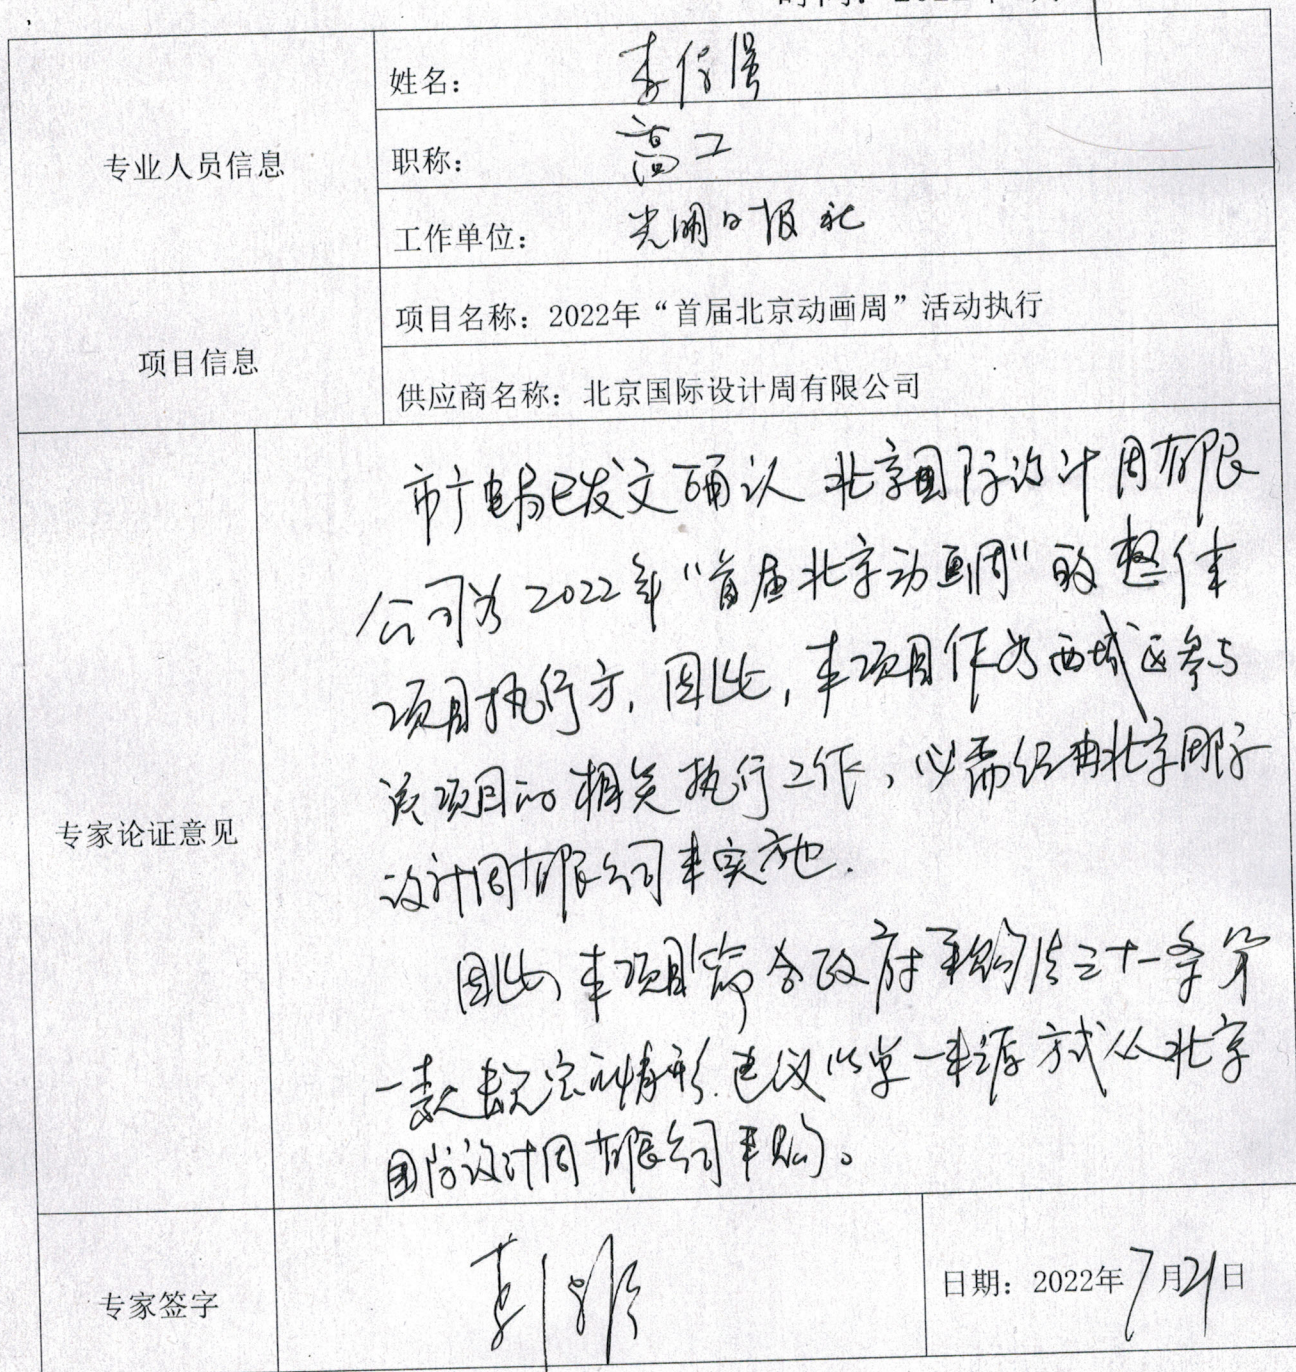 时间：2022年 月
专业人员信息
姓名：李保强
职称：高工
工作单位：光明日报社
项目信息
项目名称：2022年“首届北京动画周”活动执行
供应商名称：北京国际设计周有限公司
专家论证意见
市广电局已发文确认北京国际设计周有限
公司为2022年“首届北京动画周”的整体
项目执行方，因此，本项目作为西城区参与
该项目的相关执行工作，必需经由北京国际
设计周有限公司来实施.
因此，本项目符合政府采购法三十一条第
一款规定的情形.建议以单一来源方式从北京
国际设计周有限公司采购。
专家签字
李保强
日期：2022年7月21日